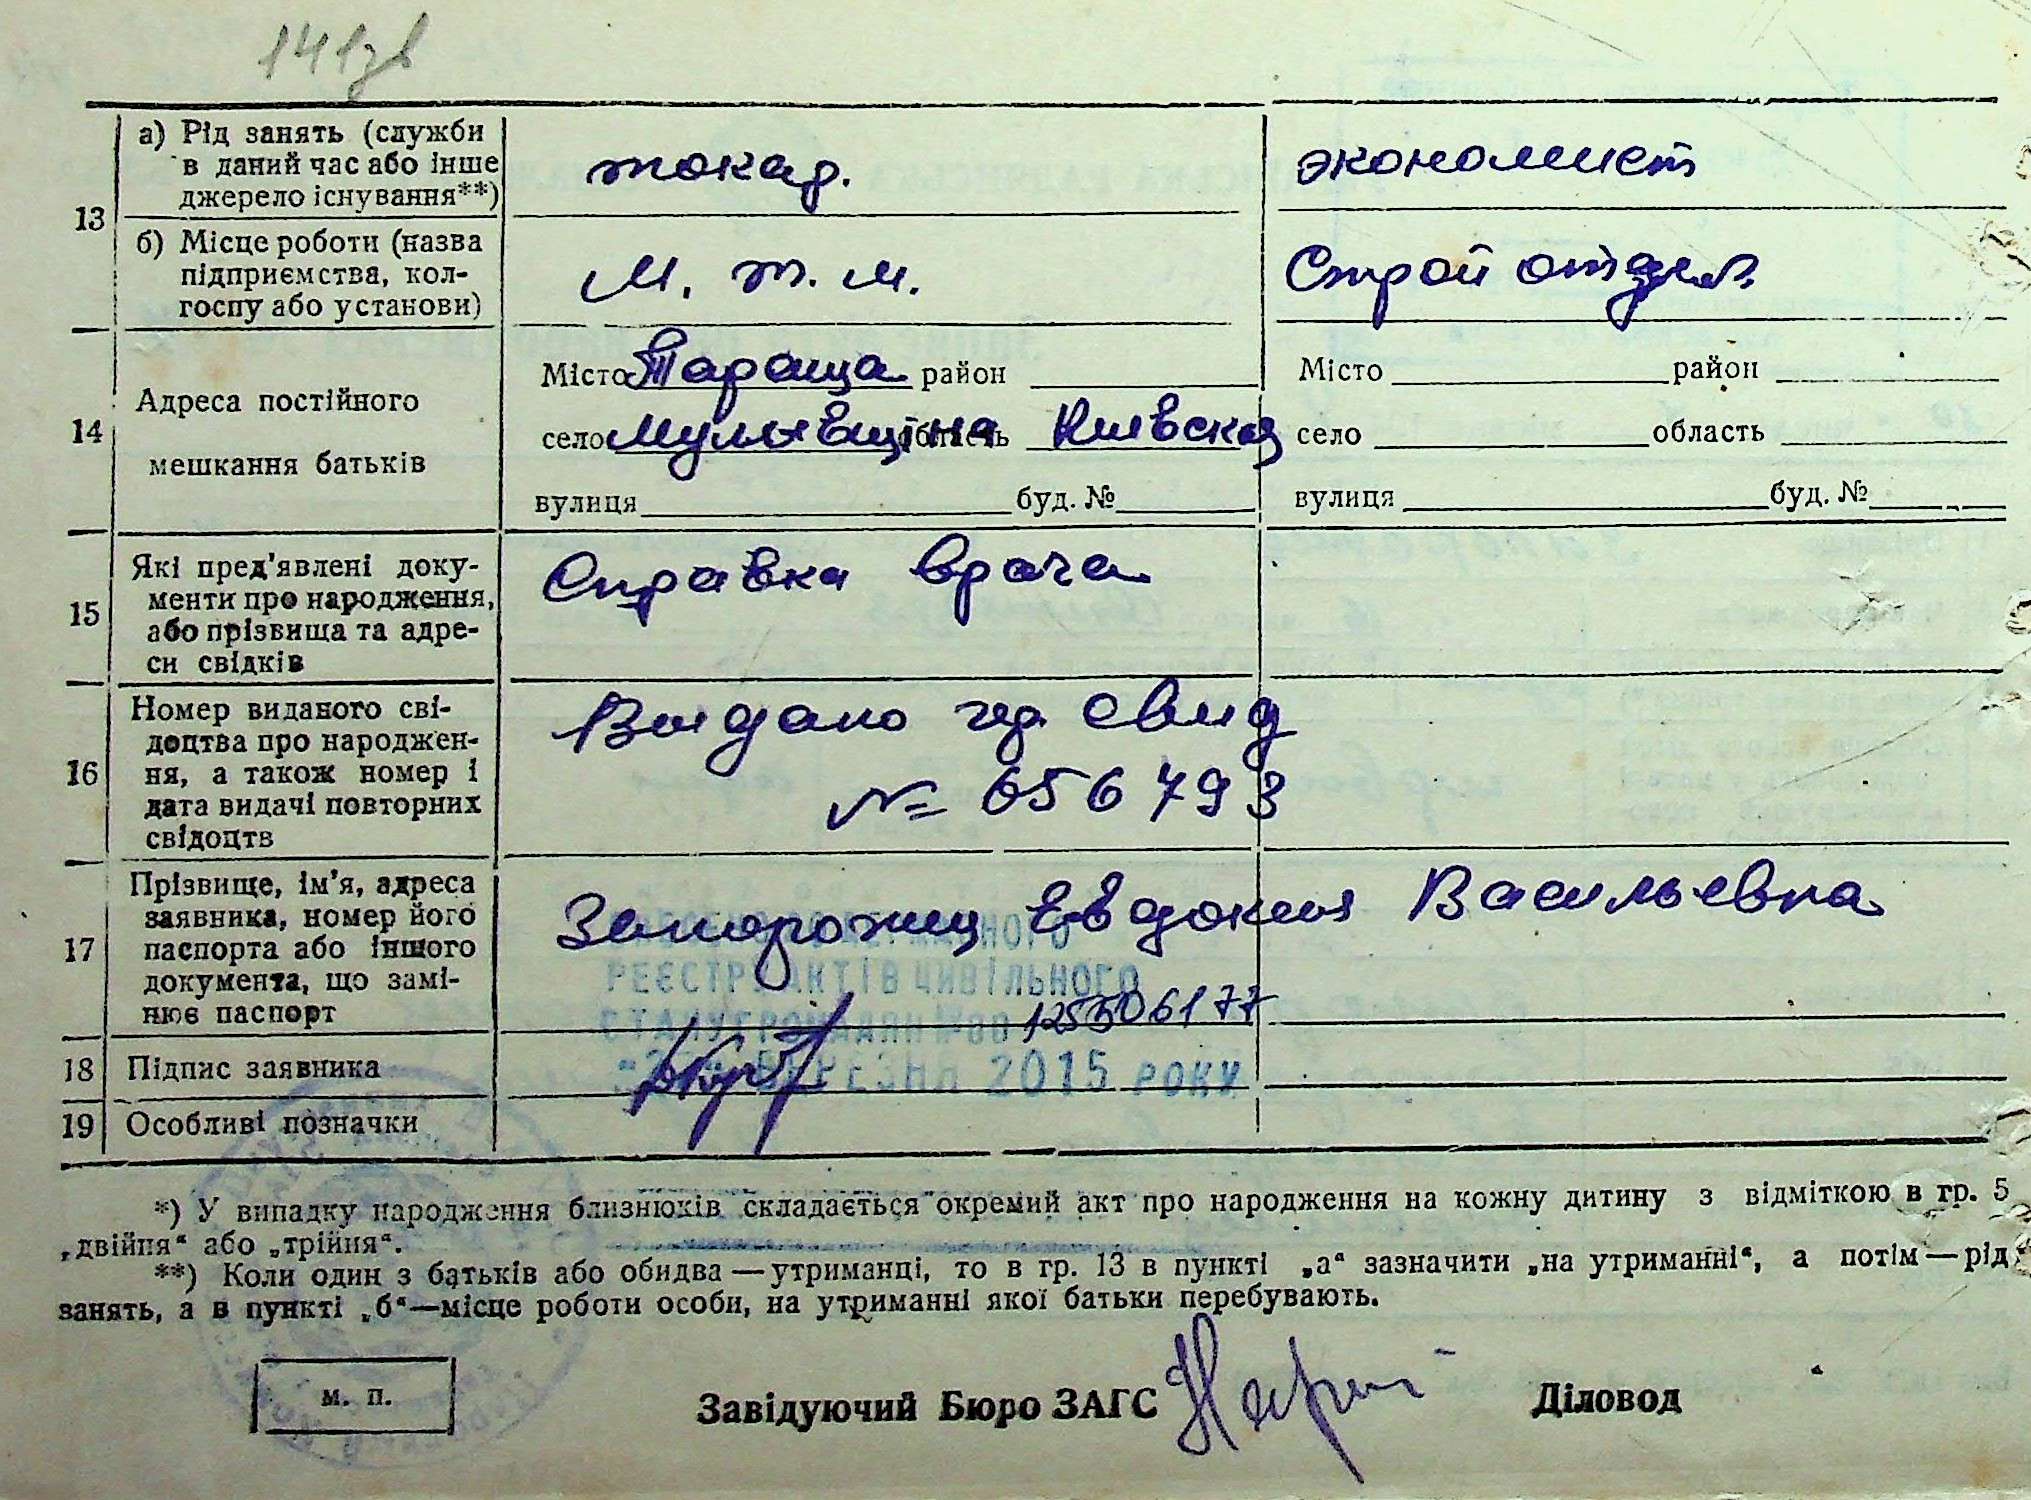 141зв
13
а) Рід занять (служби
в даний час або інше
джерело існування**)
токар.
экономист
б) Місце роботи (назва
підприємства, кол-
госпу або установи)
М. т. м.
Строй отдел
14
Адреса постійного
мешкання батьків
Місто Тараща район
село область Киевская
вулиця буд. №
Місто район
село область
вулиця буд. №
15
Які пред'явлені доку-
менти про народження,
або прізвища та адре-
си свідків
Справка врача
16
Номер виданого сві-
доцтва про народжен-
ня, а також номер і
дата видачі повторних
свідоцтв
Видано свид
№ 656793
17
Прізвище, ім'я, адреса
заявника, номер його
паспорта або іншого
документа, що замі-
нює паспорт
Запорожец Евдокия Васильевна
РЕЄСТРУ АКТІВ ЦИВІЛЬНОГО
СТАНУ ГРОМАДЯН
БЕРЕЗНЯ 2015 РОКУ
18
Підпис заявника
19
Особливі позначки
*) У випадку народження близнюків складається окремий акт про народження на кожну дитину з відміткою в гр. 5
„двійня“ або „трійня“.
**) Коли один з батьків або обидва — утриманці, то в гр. 13 в пункті „а“ зазначити „на утриманні“, а потім — рід
занять, а в пункті „б“—місце роботи особи, на утриманні якої батьки перебувають.
м. п.
Завідуючий Бюро ЗАГС
Діловод